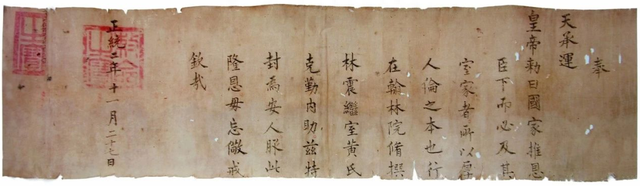 奉
天承運
皇帝勅曰國家推恩
臣下而必及其
室家者所以厚
人倫之本也行
在翰林院脩撰
林震繼室黄氏
克勤内助兹特
封爲安人服此
隆恩毋忘儆戒
欽哉
正統二年十一月二十七日